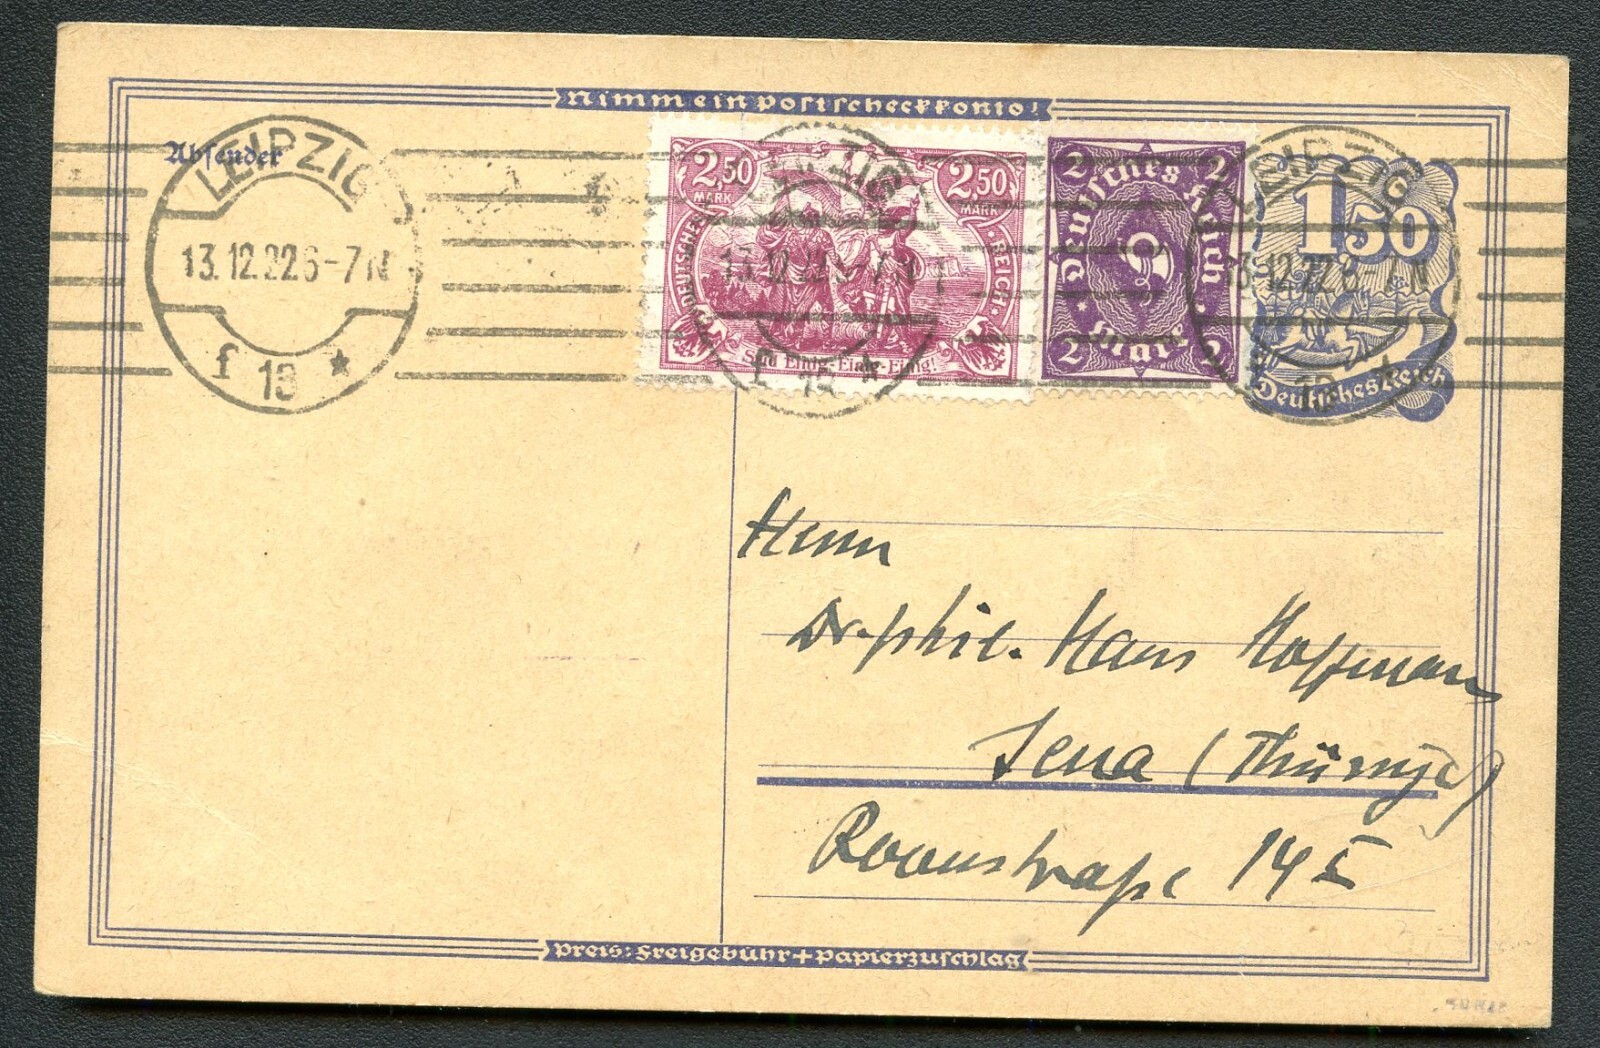 Nimm ein Postscheckkonto!
Absender
LEIPZIG
13.12.22 6-7 N
f 13 *
2,50 MARK
2,50 MARK
DEUTSCHES REICH
Seid Einig-Einig-Einig!
LEIPZIG
13.12.22 6-7 N
f 13 *
2 2
Deutsches Reich
2
2 Mark 2
LEIPZIG
13.12.22 6-7 N
1,50
Deutsches Reich
Herrn
Dr. phil. Hans Hoffmann
Jena (Thüringen)
Roonstraße 14 I
Preis: Freigebühr + Papierzuschlag